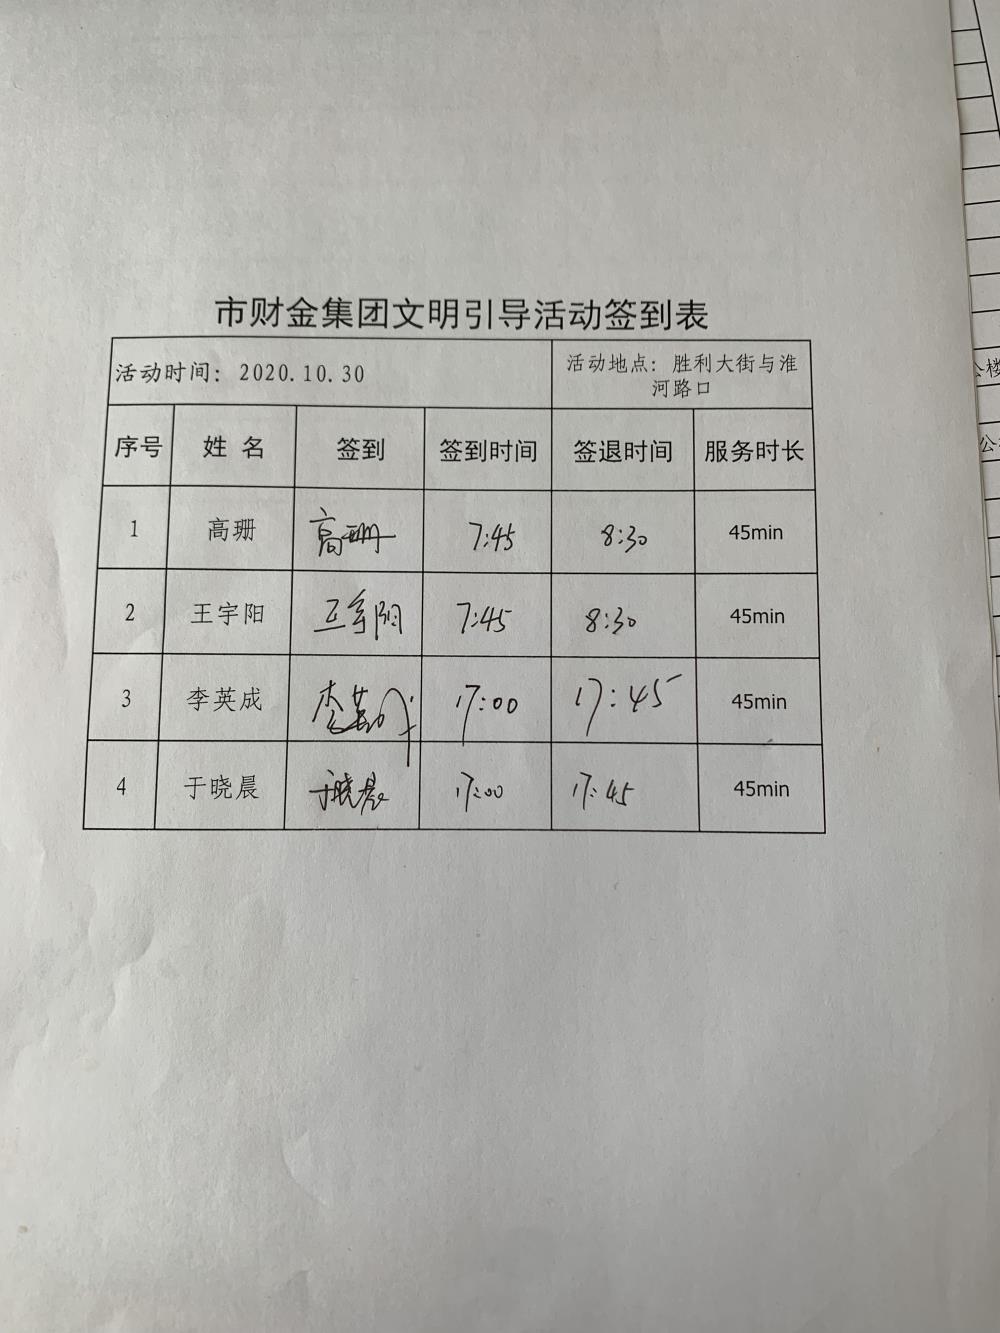 市财金集团文明引导活动签到表
活动时间: 2020.10.30
活动地点: 胜利大街与淮
河路口
序号 姓 名 签到 签到时间 签退时间 服务时长
1 高珊 高珊 7:45 8:30 45min
2 王宇阳 王宇阳 7:45 8:30 45min
3 李英成 李英成 17:00 17:45 45min
4 于晓晨 于晓晨 17:00 17:45 45min
公楼